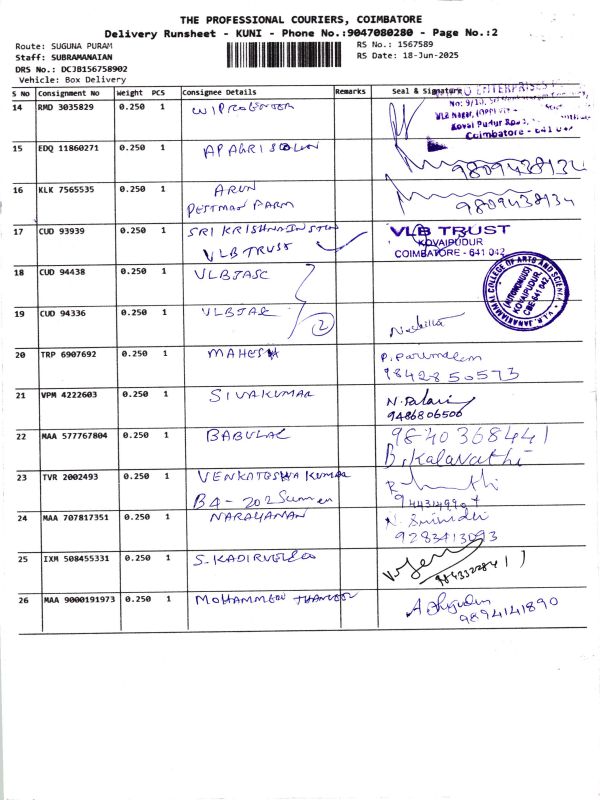 THE PROFESSIONAL COURIERS, COIMBATORE
Delivery Runsheet - KUNI - Phone No.:9047080280 - Page No.:2
Route: SUGUNA PURAM
RS No.: 1567589
Staff: SUBRAMANAIAN
RS Date: 18-Jun-2025
DRS No.: DCJB156758902
Vehicle: Box Delivery
S No Consignment No Weight PCS Consignee Details Remarks Seal & Signature
14 RMD 3035829 0.250 1 WIPROGENTER
ENTERPRISES
No: 9/10,
VLB Nagar, (OPP)
Kovai Pudur
Coimbatore - 641 042
15 EDQ 11860271 0.250 1 AP AGRI
9809438134
16 KLK 7565535 0.250 1 ARUN
PESTMAN FARM
9809438134
17 CUD 93939 0.250 1 SRI KRISHNA
VLB TRUST
VLB TRUST
KOVAIPUDUR
COIMBATORE - 641 042
18 CUD 94438 0.250 1 VLBJASC
V.L.B. JANAKIAMMAL COLLEGE OF ARTS AND SCIENCE
(AUTONOMOUS)
KOVAIPUDUR
CBE-641 042
19 CUD 94336 0.250 1 VLBJAS
2
20 TRP 6907692 0.250 1 MAHESH
P. Parimalam
9842850573
21 VPM 4222603 0.250 1 SIVAKUMAR
N. Palani
9486806506
22 MAA 577767804 0.250 1 BABULAL
9840368441
B. Kalavathi
23 TVR 2002493 0.250 1 VENKATESHA KUMAR
B4 - 202
24 MAA 707817351 0.250 1 NARAYANAN
9283413093
25 IXM 508455331 0.250 1 S. KADIRVELOO
26 MAA 9000191973 0.250 1 MOHAMMED
9894141890